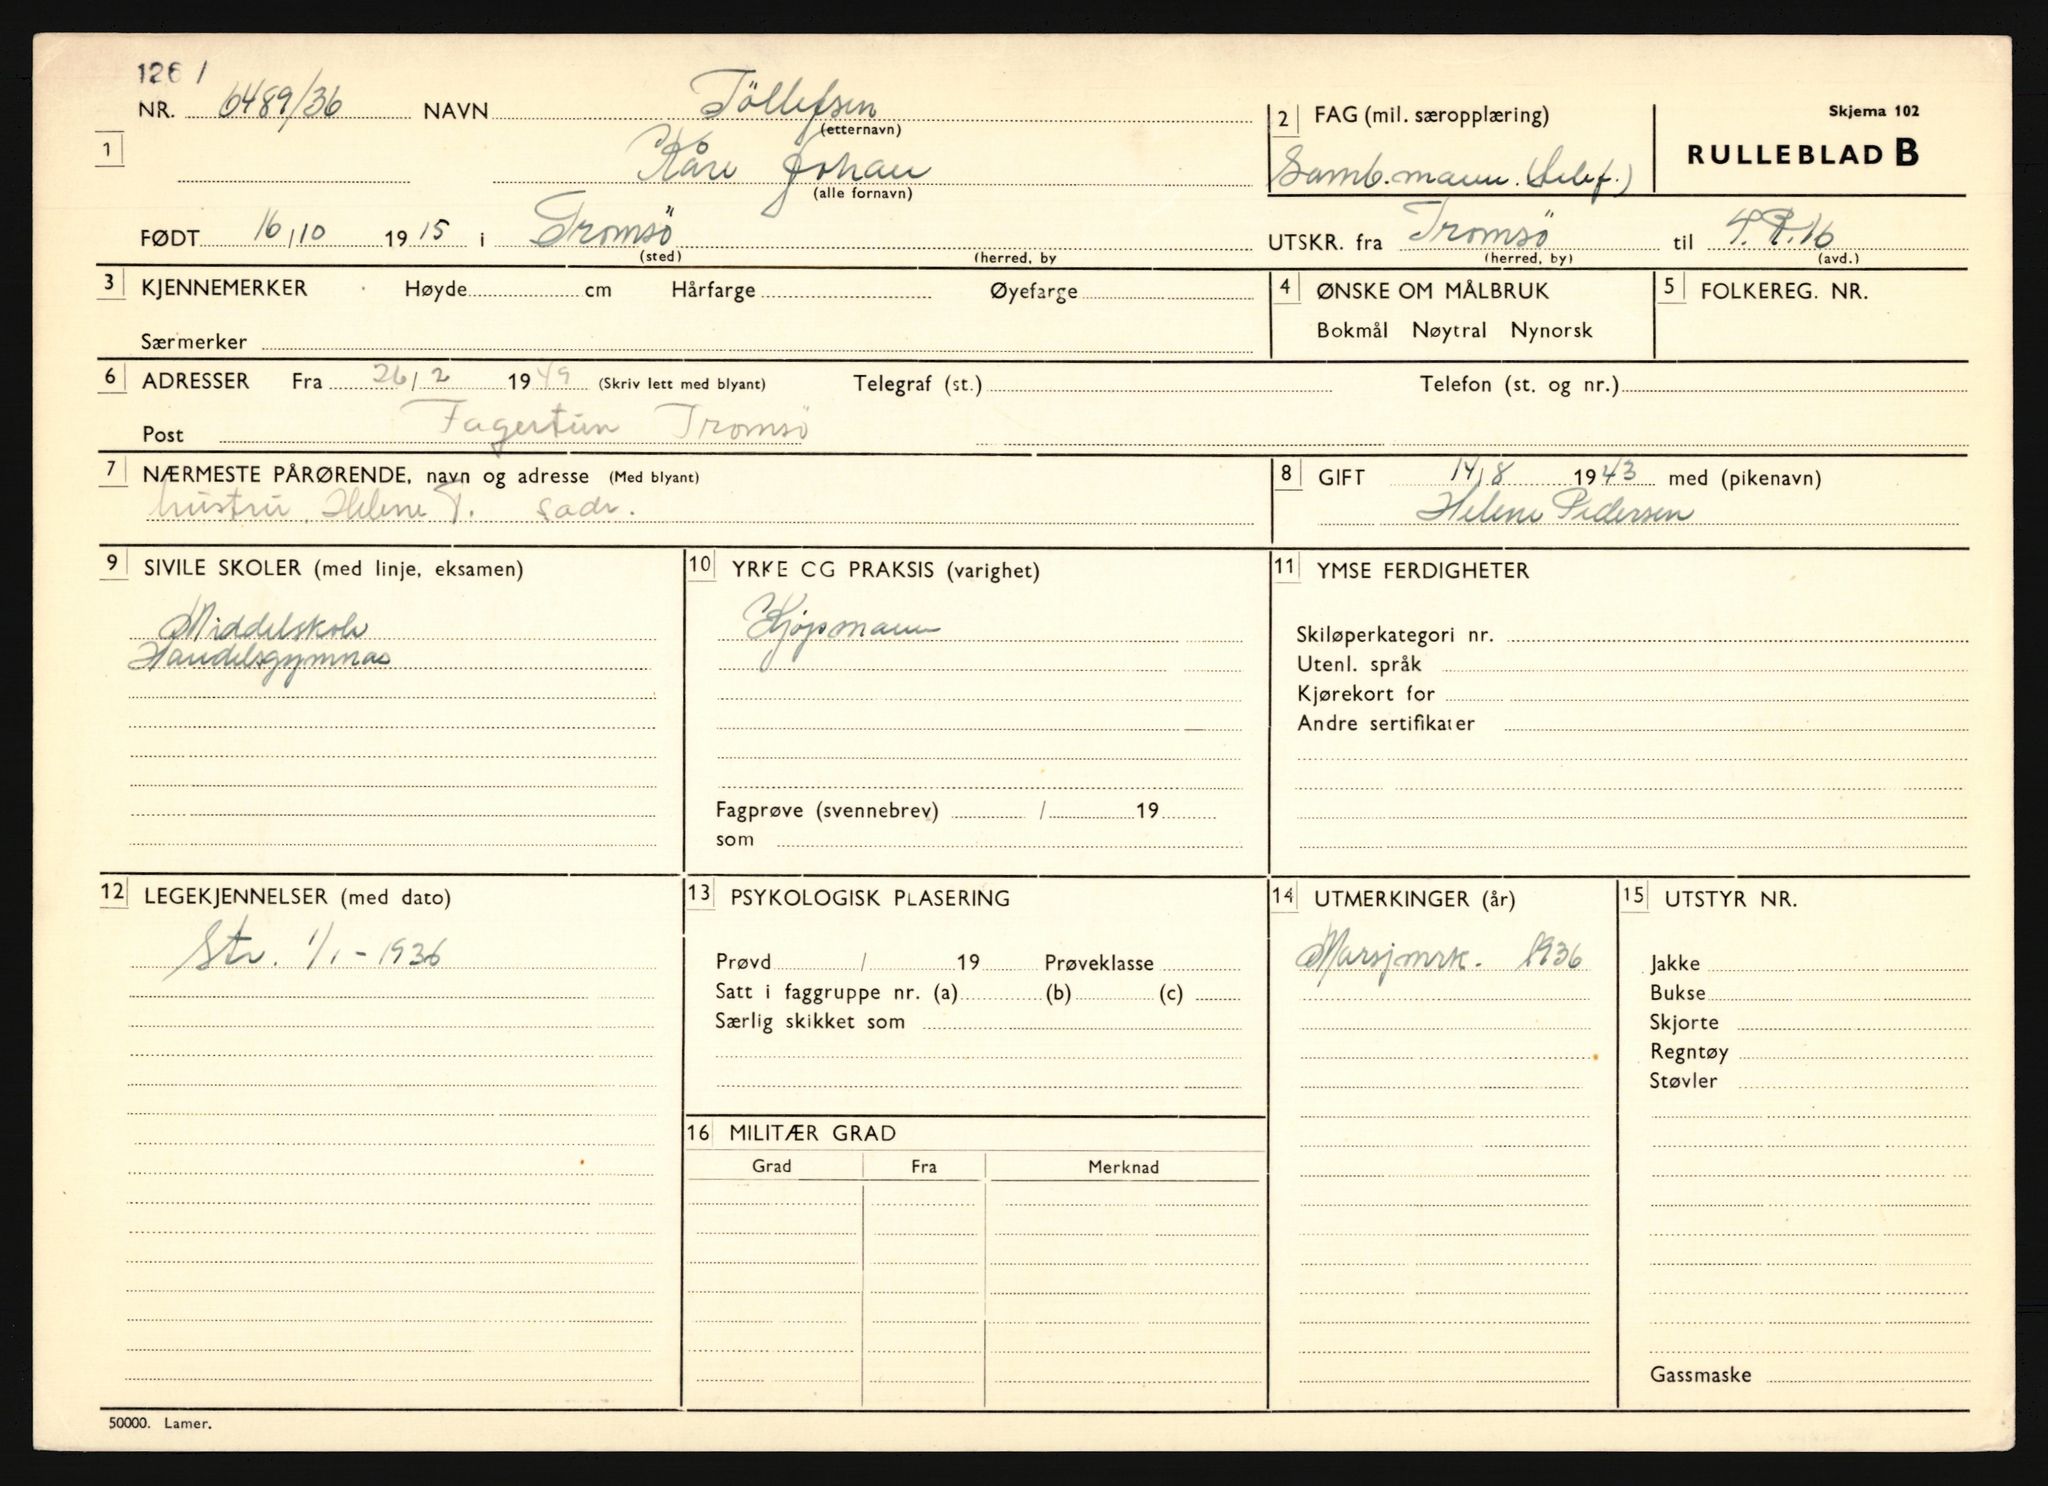 126 /
NR. 6489/36 NAVN Töllefsen
(etternavn)
1
Kåre Johan
(alle fornavn)
2 FAG (mil. særopplæring)
Samb.mann. (telef.)
Skjema 102
RULLEBLAD B
FØDT 16/10 1915 i Tromsö
(sted) (herred, by
UTSKR. fra Tromsö til I.R.16
(herred, by) (avd.)
3 KJENNEMERKER Høyde cm Hårfarge Øyefarge
Særmerker
4 ØNSKE OM MÅLBRUK
Bokmål Nøytral Nynorsk
5 FOLKEREG. NR.
6 ADRESSER Fra 26/2 1949 (Skriv lett med blyant) Telegraf (st.) Telefon (st. og nr.)
Post Fagertun Tromsö
7 NÆRMESTE PÅRØRENDE, navn og adresse (Med blyant)
hustru, Helene T. sadr.
8 GIFT 14/8 1943 med (pikenavn)
Helene Pedersen
9 SIVILE SKOLER (med linje, eksamen)
Middelskole
Handelsgymnas
10 YRKE OG PRAKSIS (varighet)
Kjøpmann
Fagprøve (svennebrev) / 19
som
11 YMSE FERDIGHETER
Skiløperkategori nr.
Utenl. språk
Kjørekort for
Andre sertifikater
12 LEGEKJENNELSER (med dato)
Str. 1/1-1936
13 PSYKOLOGISK PLASERING
Prøvd / 19 Prøveklasse
Satt i faggruppe nr. (a) (b) (c)
Særlig skikket som
14 UTMERKINGER (år)
Marsjmrk. 1936
15 UTSTYR NR.
Jakke
Bukse
Skjorte
Regntøy
Støvler
Gassmaske
16 MILITÆR GRAD
Grad Fra Merknad
50000. Lamer.